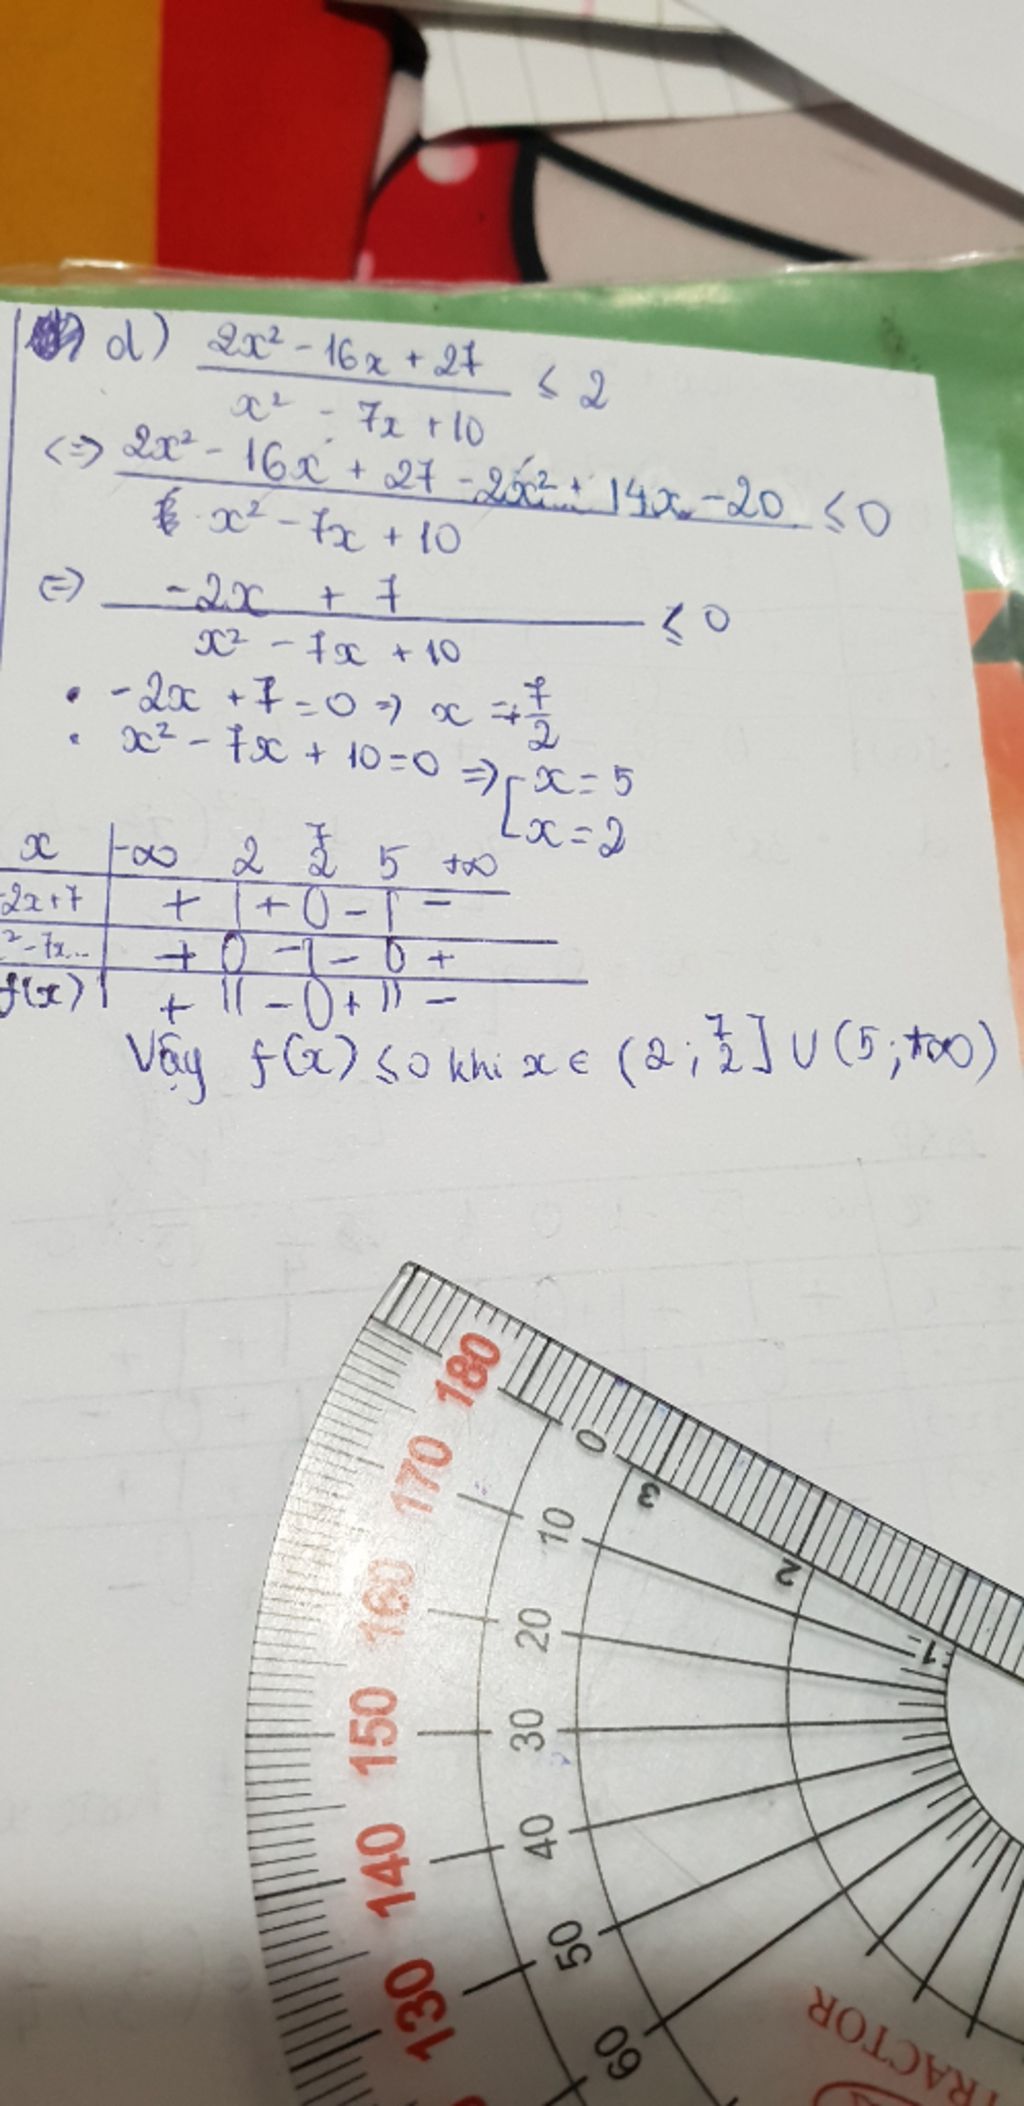 d) 2x² - 16x + 27 / x² - 7x + 10 ≤ 2
<=> 2x² - 16x + 27 - 2x² + 14x - 20 / x² - 7x + 10 ≤ 0
<=> -2x + 7 / x² - 7x + 10 ≤ 0
• -2x + 7 = 0 => x = + 7/2
• x² - 7x + 10 = 0 => [ x = 5
x = 2
x | -∞ 2 7/2 5 +∞
-2x+7 + | + 0 - | -
²-7x... + 0 - | - 0 +
f(x) | + || - 0 + || -
Vậy f(x) ≤ 0 khi x ∈ (2 ; 7/2] ∪ (5 ; +∞)
180
170 0 3
160 10 2
150 20 1
140 30
130 40
50
60
TRACTOR